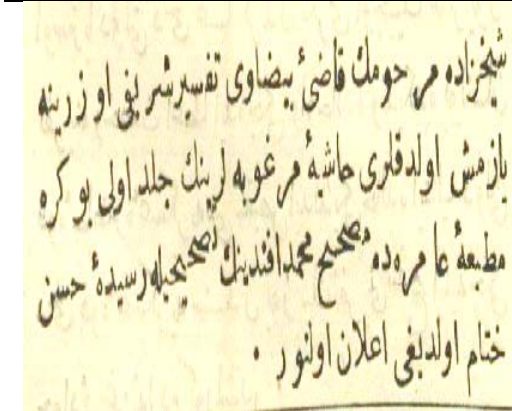 شیخزاده مرحومك قاضئ بیضاوی تفسیر شریفی اوزرینه
یازمش اولدقلری حاشیهٔ مرغوبه لرینك جلد اولی بو کره
مطبعهٔ عامره‌ده مصحح محمد افندینك تصحیحیله رسیدهٔ حسن
ختام اولدیغی اعلان اولنور .